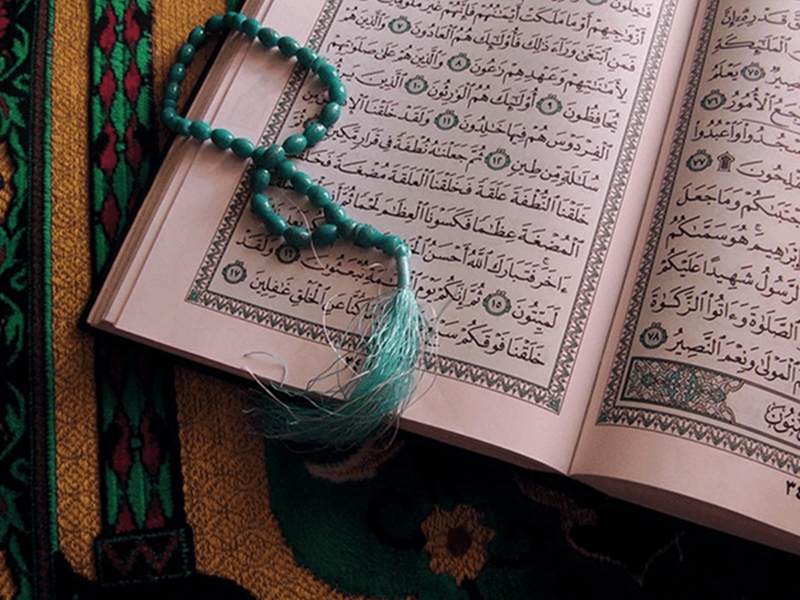 قَدْرِهِۦٓ إِنَّ
ٱلْمَلَٰٓئِكَةِ
٧٥ يَعْلَمُ
ٱلْأُمُورُ ٧٦
وَٱعْبُدُوا۟
٧٧
وَمَا جَعَلَ
هُوَ سَمَّىٰكُمُ
ٱلرَّسُولُ شَهِيدًا عَلَيْكُمْ
ٱلصَّلَوٰةَ وَءَاتُوا۟ ٱلزَّكَوٰةَ
ٱلْمَوْلَىٰ وَنِعْمَ ٱلنَّصِيرُ ٧٨
فَٰعِلُونَ
أَزْوَٰجِهِمْ أَوْ مَا مَلَكَتْ أَيْمَٰنُهُمْ فَإِنَّهُمْ غَيْرُ مَلُومِينَ
فَمَنِ ٱبْتَغَىٰ وَرَآءَ ذَٰلِكَ فَأُو۟لَٰٓئِكَ هُمُ ٱلْعَادُونَ ٧ وَٱلَّذِينَ هُمْ
لِأَمَٰنَٰتِهِمْ وَعَهْدِهِمْ رَٰعُونَ ٨ وَٱلَّذِينَ هُمْ عَلَىٰ صَلَوَٰتِهِمْ
يُحَافِظُونَ ٩ أُو۟لَٰٓئِكَ هُمُ ٱلْوَٰرِثُونَ ١٠ ٱلَّذِينَ
ٱلْفِرْدَوْسَ هُمْ فِيهَا خَٰلِدُونَ ١١ وَلَقَدْ خَلَقْنَا
سُلَٰلَةٍ مِّن طِينٍ ١٢ ثُمَّ جَعَلْنَٰهُ نُطْفَةً فِى قَرَارٍ مَّكِينٍ
خَلَقْنَا ٱلنُّطْفَةَ عَلَقَةً فَخَلَقْنَا ٱلْعَلَقَةَ مُضْغَةً فَخَلَقْنَا
ٱلْمُضْغَةَ عِظَٰمًا فَكَسَوْنَا ٱلْعِظَٰمَ لَحْمًا
ءَاخَرَ فَتَبَارَكَ ٱللَّهُ أَحْسَنُ
لَمَيِّتُونَ ١٥ ثُمَّ إِنَّكُمْ يَوْمَ تُبْعَثُونَ ١٦ وَلَقَدْ
خَلَقْنَا فَوْقَكُمْ عَنِ ٱلْخَلْقِ غَٰفِلِينَ ١٧